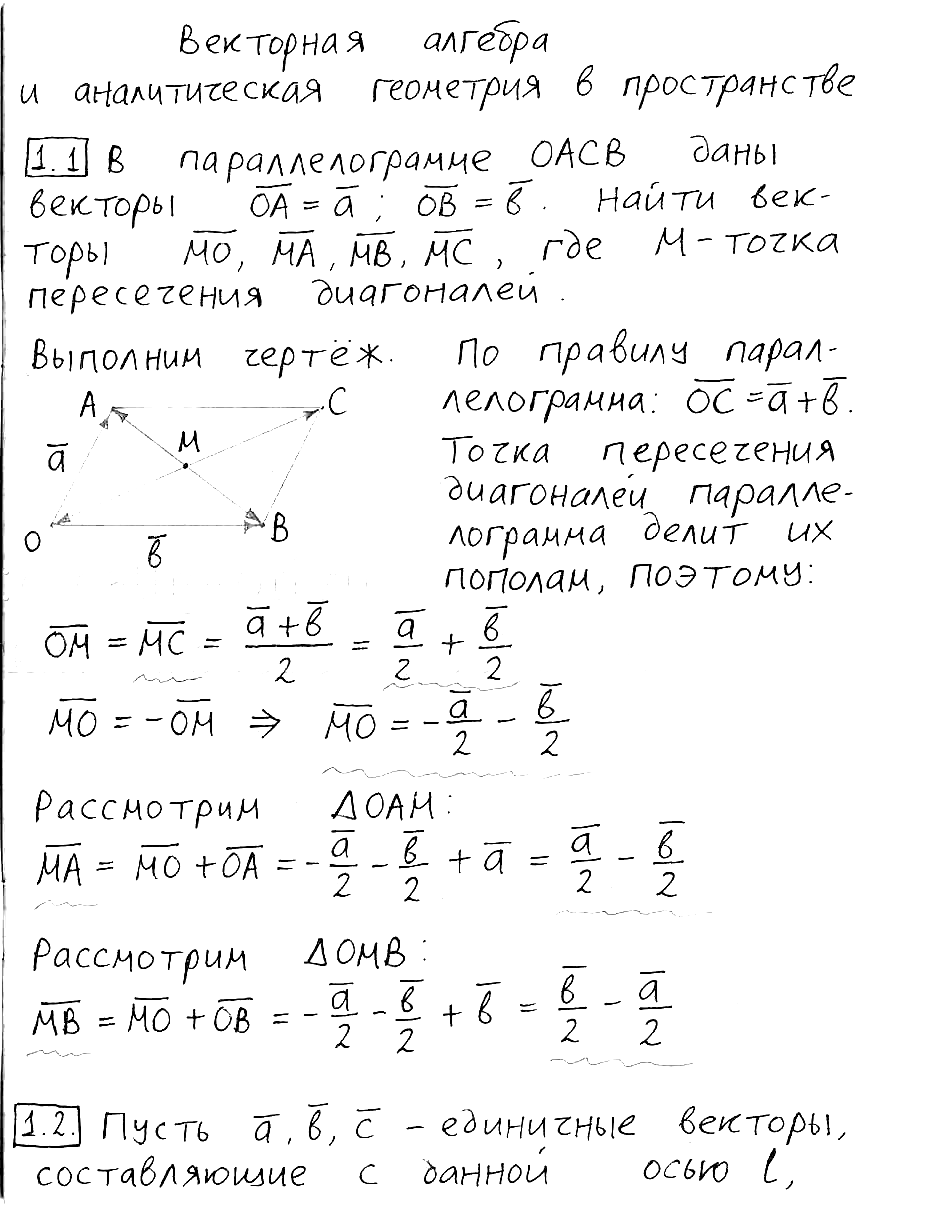 Векторная алгебра
и аналитическая геометрия в пространстве
1.1 В параллелограмме OACB даны
векторы O͞A͞ = a̅ ; O͞B͞ = b̅ . Найти век-
торы M͞O͞, M͞A͞, M͞B͞, M͞C͞, где M - точка
пересечения диагоналей.
Выполним чертёж. По правилу парал-
лелограмма: O͞C͞ = a̅ + b̅.
Точка пересечения
диагоналей паралле-
лограмма делит их
пополам, поэтому:
A C
M
a̅
O B
b̅
O͞M͞ = M͞C͞ = (a̅ + b̅)/2 = a̅/2 + b̅/2
M͞O͞ = -O͞M͞ ⇒ M͞O͞ = -a̅/2 - b̅/2
Рассмотрим ΔOAM:
M͞A͞ = M͞O͞ + O͞A͞ = -a̅/2 - b̅/2 + a̅ = a̅/2 - b̅/2
Рассмотрим ΔOMB:
M͞B͞ = M͞O͞ + O͞B͞ = -a̅/2 - b̅/2 + b̅ = b̅/2 - a̅/2
1.2. Пусть a̅, b̅, c̅ - единичные векторы,
составляющие с данной осью l,